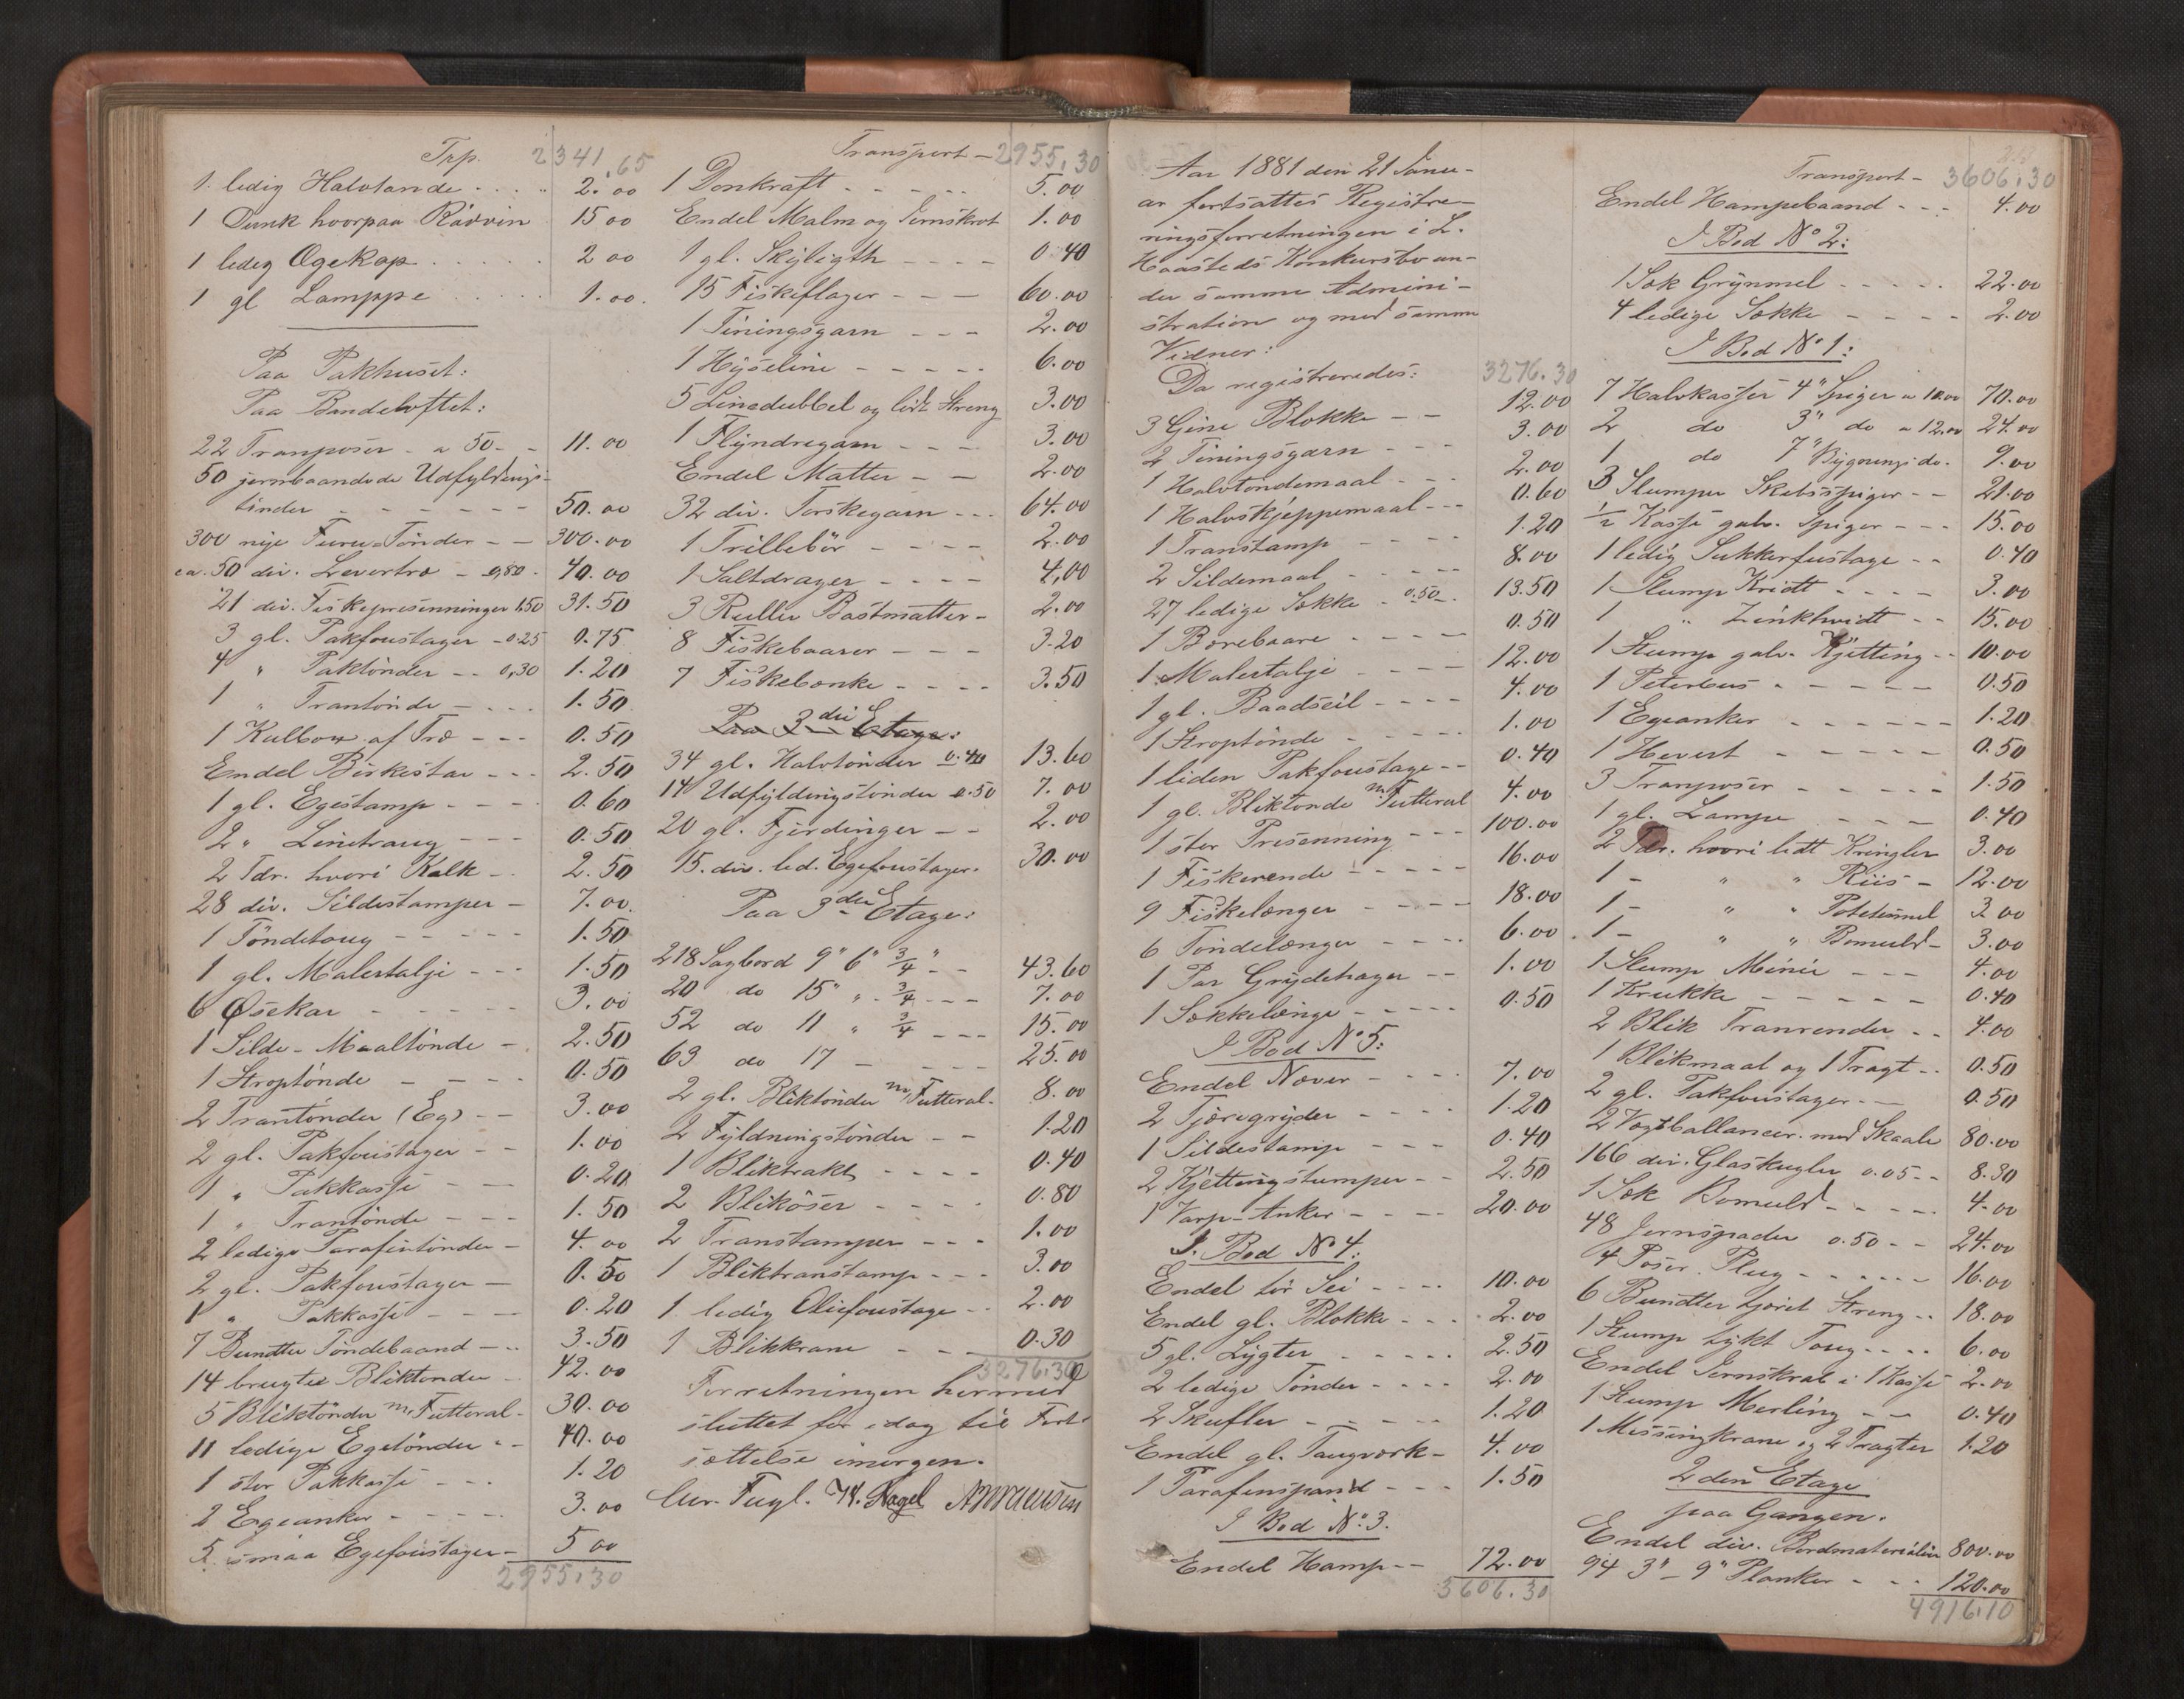 Trp. 2341,65
1 ledig Halvtønde 2.00
1 Dunk hvorpaa Rødvin 15 00
1 ledig Øgekop 2 00
1 gl Lamppe 1.00
Paa Pakhuset:
Paa Bandeloftet:
22 Tranposer a 50 - 11.00
50 jernbaandede Udfyldnings-
tønder - 50.00
300 nye Furu-Tønder - 300.00
ca. 50 div. Levertræ - 0,80 - 40.00
21 div. Fiskepresenninger 1.50 31.50
3 gl. Pakfoustager - 0.25 0.75
4 " Paktønder - 0,30 1.20
1 " Trantønde - 1.50
1 Kulbox af Træ - 0.50
Endel Birkestav - 2.50
1 gl. Egestamp - 0.60
2 " Linetraug - 0.50
2 Tdr. hvori Kalk - 2.50
28 div. Sildestamper - 7.00
1 Töndetoug - 1.50
1 gl. Malertalje - 1.50
6 Øsekar - 3.00
1 Silde-Maaltönde - 2.50
1 Stroptönde - 0.50
2 Trantönder (Eg) - 3.00
2 gl. Pakfoustager - 1.00
1 " Pakkasse - 0.20
1 " Trantönde - 1.50
2 ledige Parafintönder - 4.00
2 gl. Pakfoustager - 0.50
1 " Pakkasse - 0.20
7 Bundter Töndebaand - 3.50
14 brugte Bliktönder - 42.00
5 Bliktönder m. Futteral - 30.00
11 ledige Egetönder - 40.00
1 stor Pakkasse - 1.20
2 Egeanker - 3.00
5 smaa Egefoustager - 5 00
2955,30
Transport - 2955,30
1 Donkraft - 5.00
Endel Malm og Jernskrot 1.00
1 gl. Skyligth - 0.40
15 Fiskeflager - 60.00
1 Tiningsgarn - 2.00
1 Hyseline - 6.00
5 Linedubbel og lidt Streng 3.00
1 Flyndregarn - 3.00
Endel Matter - 2.00
32 div. Torskegarn - 64.00
1 Trillebör - 2.00
1 Saltdrager - 4,00
3 Ruller Bastmatter - 2.00
8 Fiskebaarer - 3.20
7 Fiskebænke - 3.50
Paa 3die Etage:
34 gl. Halvtönder 0.40 13.60
14 Udfyldingstönder 0.50 7.00
20 gl. Fjerdinger - 2.00
15 div. led. Egefoustager 30.00
Paa 3die Etage:
218 Sagbord 9" 6" 3/4" - 43.60
20 do 15" " 3/4 - 7.00
52 do 11 " 3/4 - 15.00
63 do 17 - 25.00
2 gl. Bliktönder m. Futteral - 8.00
2 Fyldningstönder - 1.20
1 Bliktrakt - 0.40
2 Bliköser - 0.80
2 Transtamper - 1.00
1 Bliktranstamp - 3.00
1 ledig Oliefoustage - 2.00
1 Blikkrane - 0.30
3276.30
Forretningen hermed
sluttet for idag til Fort-
sættelse imorgen.
Chr. Fugl. H. Nagel
Aar 1881 den 21 Janu-
ar fortsattes Registre-
ringsforretningen i L.
Haasteds Konkursbo un-
der samme Admini-
stration og med samme
Vidner:
Da registreredes: 3276.30
3 Gine Blokke - 12.00
2 Tiningsgarn - 3.00
1 Halvtøndemaal - 2.00
1 Halvskjeppemaal - 0.60
1 Transtamp - 1.20
2 Sildemaal - 8.00
27 ledige Sække - 0.50 - 13.50
1 Børebaare - 0.50
1 Malertalje - 12.00
1 gl. Baadseil - 4.00
1 Stroptönde - 1.00
1 liden Pakfoustage - 0.40
1 gl. Bliktønde m. Futteral 4.00
1 stor Presenning - 100.00
1 Fiskerende - 16.00
9 Fiskelænger - 18.00
6 Tøndelænger - 6.00
1 Par Grydehager - 1.00
1 Sækkelænge - 0.50
I Bod No 5:
Endel Næver - 7.00
2 Tjæregryder - 1.20
1 Sildestamp - 0.40
2 Kjettingstumper - 2.50
1 Varp-Anker - 20.00
I Bod No 4:
Endel tör Sei - 10.00
Endel gl. Blokke - 2.00
5 gl. Lygter - 2.50
2 ledige Tönder - 2.00
2 Skufler - 1.20
Endel gl. Taugværk - 4.00
1 Parafinspand - 1.50
I Bod No 3.
Endel Hamp - 72.00
3606.30
Transport - 3606,30
Endel Hampebaand - 4.00
I Bod No 2:
1 Sæk Grynmel - 22.00
4 ledige Sække - 2.00
I Bod No 1:
7 Halvkasser 4" Spiger a 10.00 70.00
2 do 3" do a 12.00 24.00
1 do 7" Bygnings do. 9.00
3 Slumper Skibsspiger - 21.00
1/2 Kasse galv. Spiger - 15.00
1 ledig Sukkerfustage - 0.40
1 Slump Kridt - 3.00
1 " Zinkhvidt - 15.00
1 Stump galv. Kjetting - 10.00
1 Peterbus - 0.50
1 Egeanker - 1.20
1 Hevert - 0.50
3 Tranposer - 1.50
1 gl. Lampe - 0.40
2 Tdr. hvori lidt Kringler 3.00
1 - " " Riis - 12.00
1 - " " Potetesmel 3 00
1 - " " Bomuld - 3.00
1 Slump Minie - 4.00
1 Krukke - 0.40
2 Blik Tranrender - 4.00
1 Blikmaal og 1 Tragt - 0.50
2 gl. Pakfoustager - 0.50
2 Vægtballancer med Skaale 80.00
166 div. Glaskugler 0.05 - 8.30
1 Sæk Bomuld - 4.00
48 Jernspader 0.50 - 24.00
4 Poser Plug - 16.00
6 Bundter tjæret Streng - 18.00
1 Stump tykt Toug - 6.00
Endel Jernskrab i 1 Kasse 2.00
1 Slump Merling - 0.40
1 Messingkrane og 2 Tragter 1.20
2den Etage
paa Gangen.
Endel div. Bordmaterialier 800.00
94 3" - 9" Planker - 120.00
4916,10